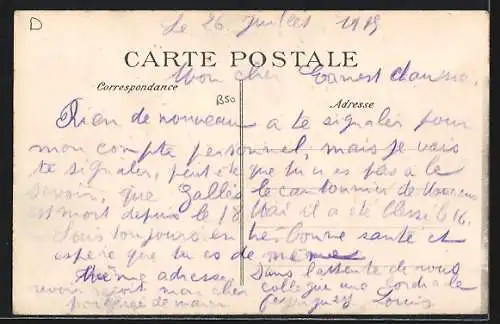 D
Le 26 Juillet 1915
CARTE POSTALE
Mon cher Ernest
Correspondance
B50
Adresse
Rien de nouveau a te signaler pour
mon compte personnel, mais je vais
te signaler, peut etre que tu n'es pas a le
savoir, que Gallés le cantonnier de
est mort depuis le 18 Mai il a été blessé le 16.
Suis toujours en bonne santé et
espère que tu es de même
Même adresse Dans l'attente de nous
revoir reçoit mon cher collegue une cordiale
poignée de main Louis